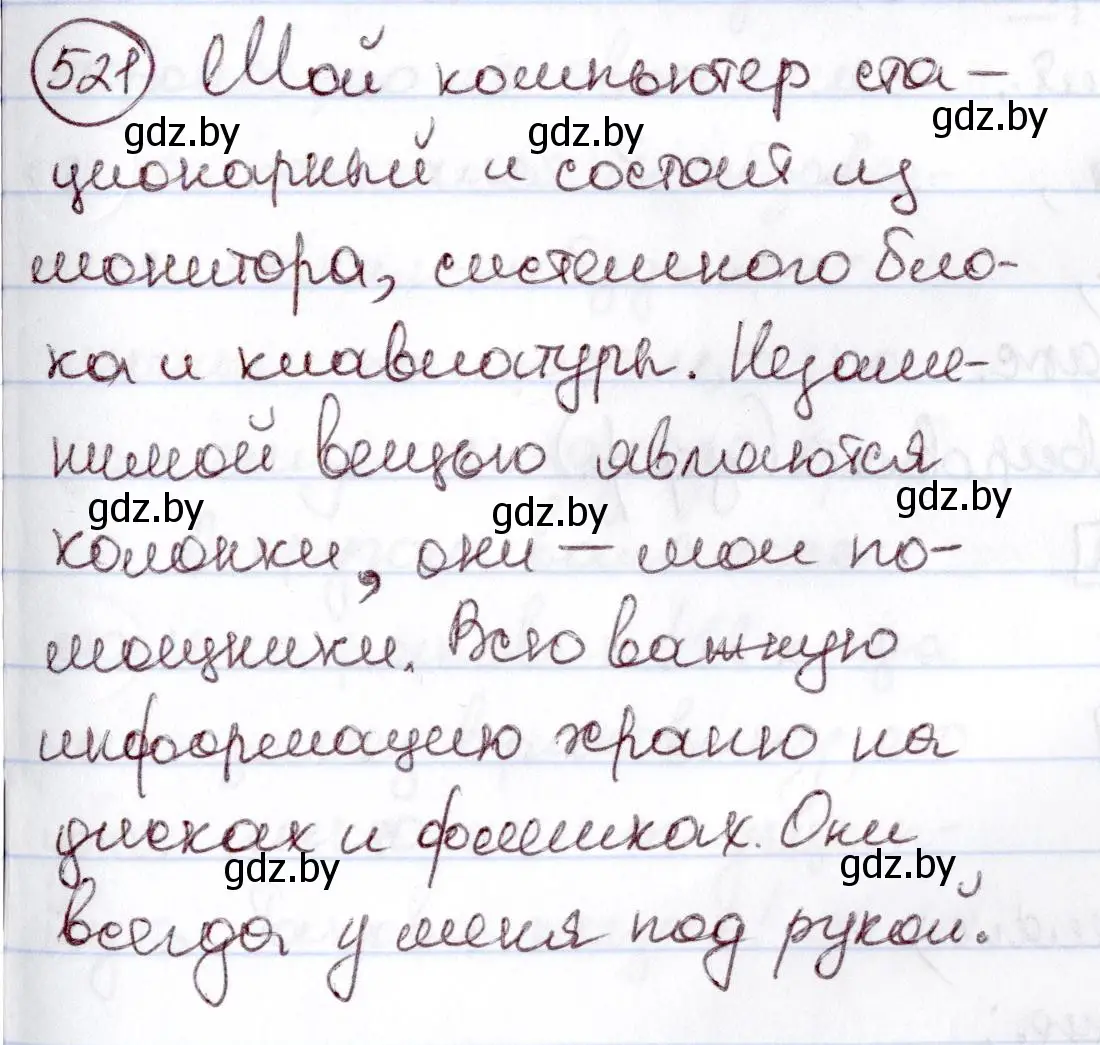 521 Мой компьютер ста-
gdz.by gdz.by gdz.by
ционарный и состоит из
монитора, системного бло-
ка и клавиатуры. Незаме-
нимой вещью являются
gdz.by gdz.by gdz.by
колонки, они – мои по-
мощники. Всю важную
информацию храню на
дисках и флешках. Они
gdz.by gdz.by
всегда у меня под рукой.